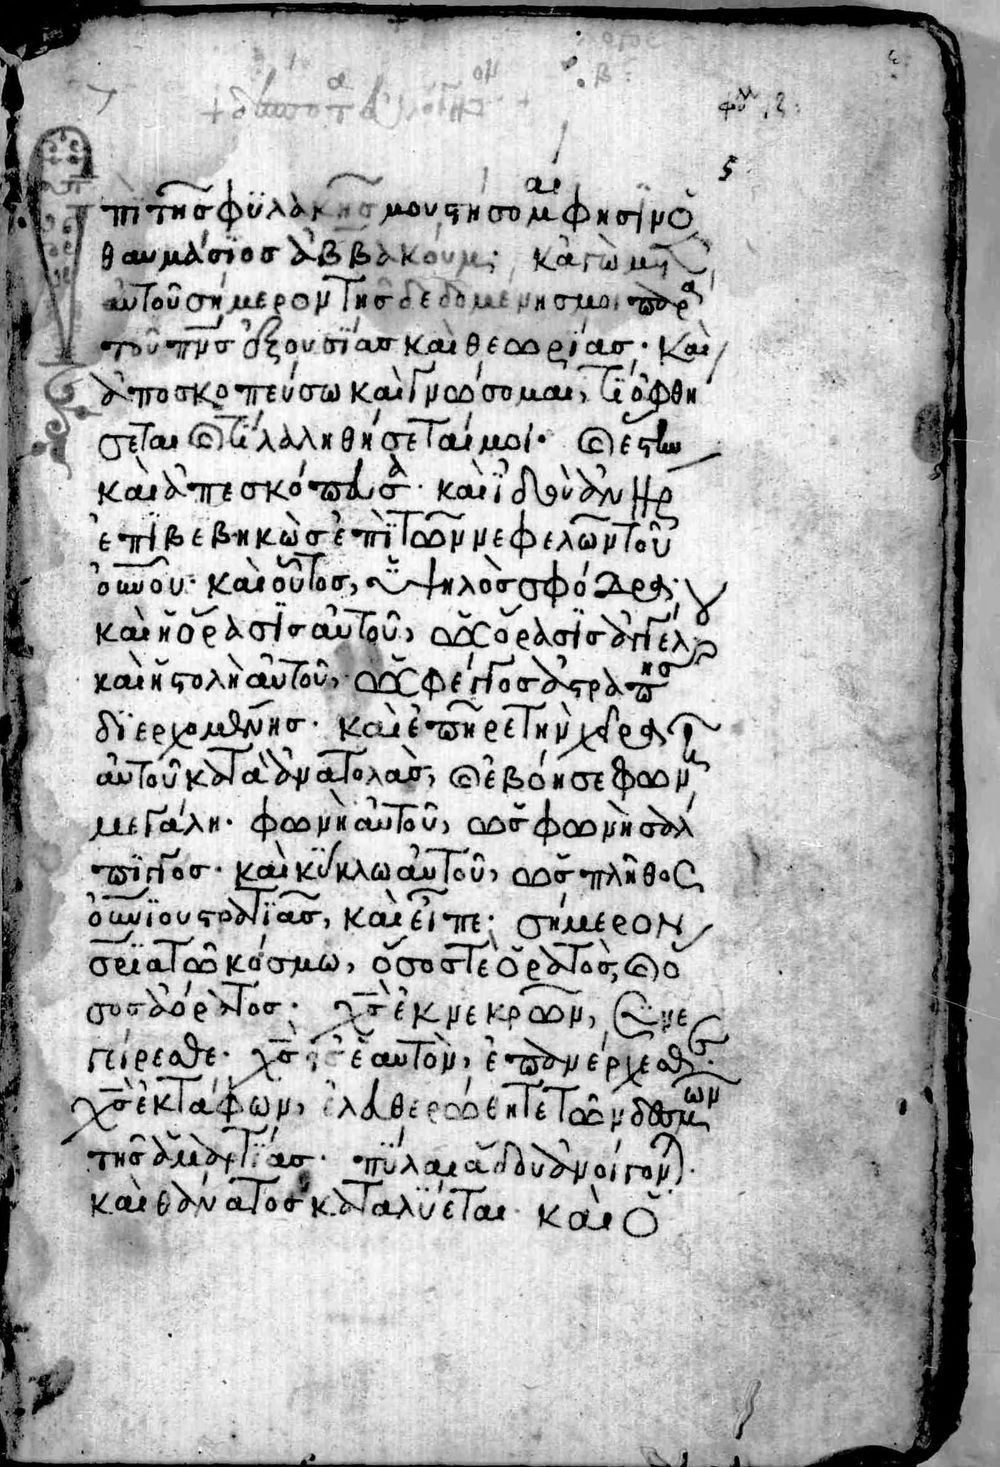 πὶ τῆς φϋλακῆς μου στήσομαι φησὶν ὁ
θαυμάσϊος ἀββακούμ· κἀγὼ μετ
αὐτοῦ σήμερον τῆς δεδομένης μοι παρὰ
τοῦ πνς ἐξουσΐας καὶ θεωρίας· καὶ
ἀποσκοπεύσω καὶ γνώσομαι, τΐ ὀφθή
σεται καὶ τΐ λαληθήσεταί μοι· καὶ ἔστην
καὶ ἀπεσκόπευσα· καὶ ἰδοὺ ἀνὴρ
ἐπϊβεβηκὼς ἐπὶ τῶν νεφελῶν τοῦ
οὐνοῦ· καὶ οὗτος, ὑψηλὸς σφόδρα·
καὶ ἡ ὅρασϊς αὐτοῦ, ὡς ὅρασϊς ἀγγέλου
καὶ ἡ στολὴ αὐτοῦ, ὡς φέγγος ἀστραπῆς
δϊερχομένης· καὶ ἐπῆρε τὴν χεῖρα
αὐτοῦ κατὰ ἀνατολὰς, καὶ ἐβόησε φωνῆ
μεγάλη· φωνὴ αὐτοῦ, ὡς φωνὴ σάλ
πϊγγος· καὶ κύκλω αὐτοῦ, ὡς πλῆθος
οὐνΐου στρατϊᾶς, καὶ εἶπε· σήμερον
σρϊα τῶ κόσμω, ὅσος τὲ ὁρατὸς, καὶ ὅ
σος ἀόρατος· χς ἐκ νεκρῶν, συνε
γείρεσθε· χς εἰς ἑαυτὸν, ἐπανέρχεσθε·
χς ἐκ τάφων, ἐλευθερώθητε τῶν δεσμῶν
τῆς ἁμαρτΐας· πύλαι ἅδου ἀνοίγονται·
καὶ θάνατος καταλύεται· καὶ ὁ